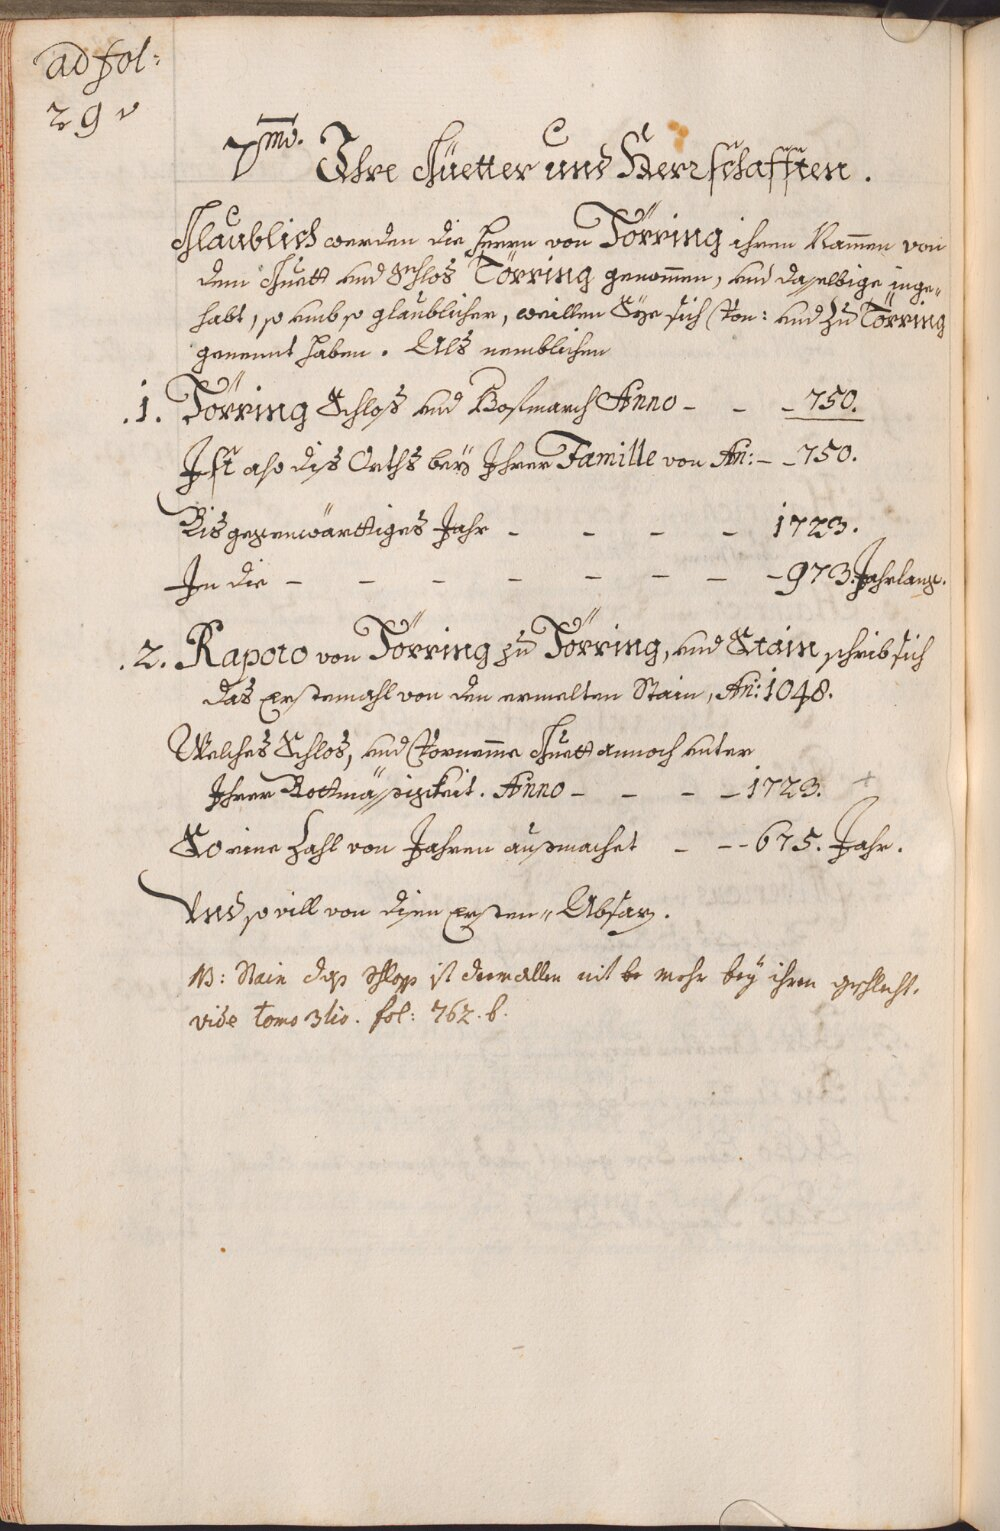 ad fol:
29 v
7mo. Ihre Güetter und Herrschafften.
Glaublich werden die Herrn von Törring ihren Nammen von
dem Guett und Schlos Törring genommen, und daselbige inge-
habt, so umb so glaublicher, weillen Sye sich Von: und zu Törring
genennt haben. Als nemblichen
.1. Törring Schloß und Hofmarch Anno - - - 750.
Ist also diß Orths bey Ihrer Famille von An: - - 750.
Bis gegenwärttiges Jahr - - - - 1723.
In die - - - - - - - - 973. Jahr lang.
.2. Rapoto von Törring zu Törring, und Stain schrib sich
das Erstemahl von den ermelten Stain, An: 1048.
Welches Schlos, und Vornemme Guett annoch unter
Ihrer Bottmässigkeit. Anno - - - - 1723. +
So eine Zahl von Jahren außmachet - - - 675. Jahr.
Und so vill von disen Ersten Absaz.
NB: Stain das schloss ist dermallen nit mehr bey ihren geschlecht.
vide tomo 3tio. fol: 762. b.